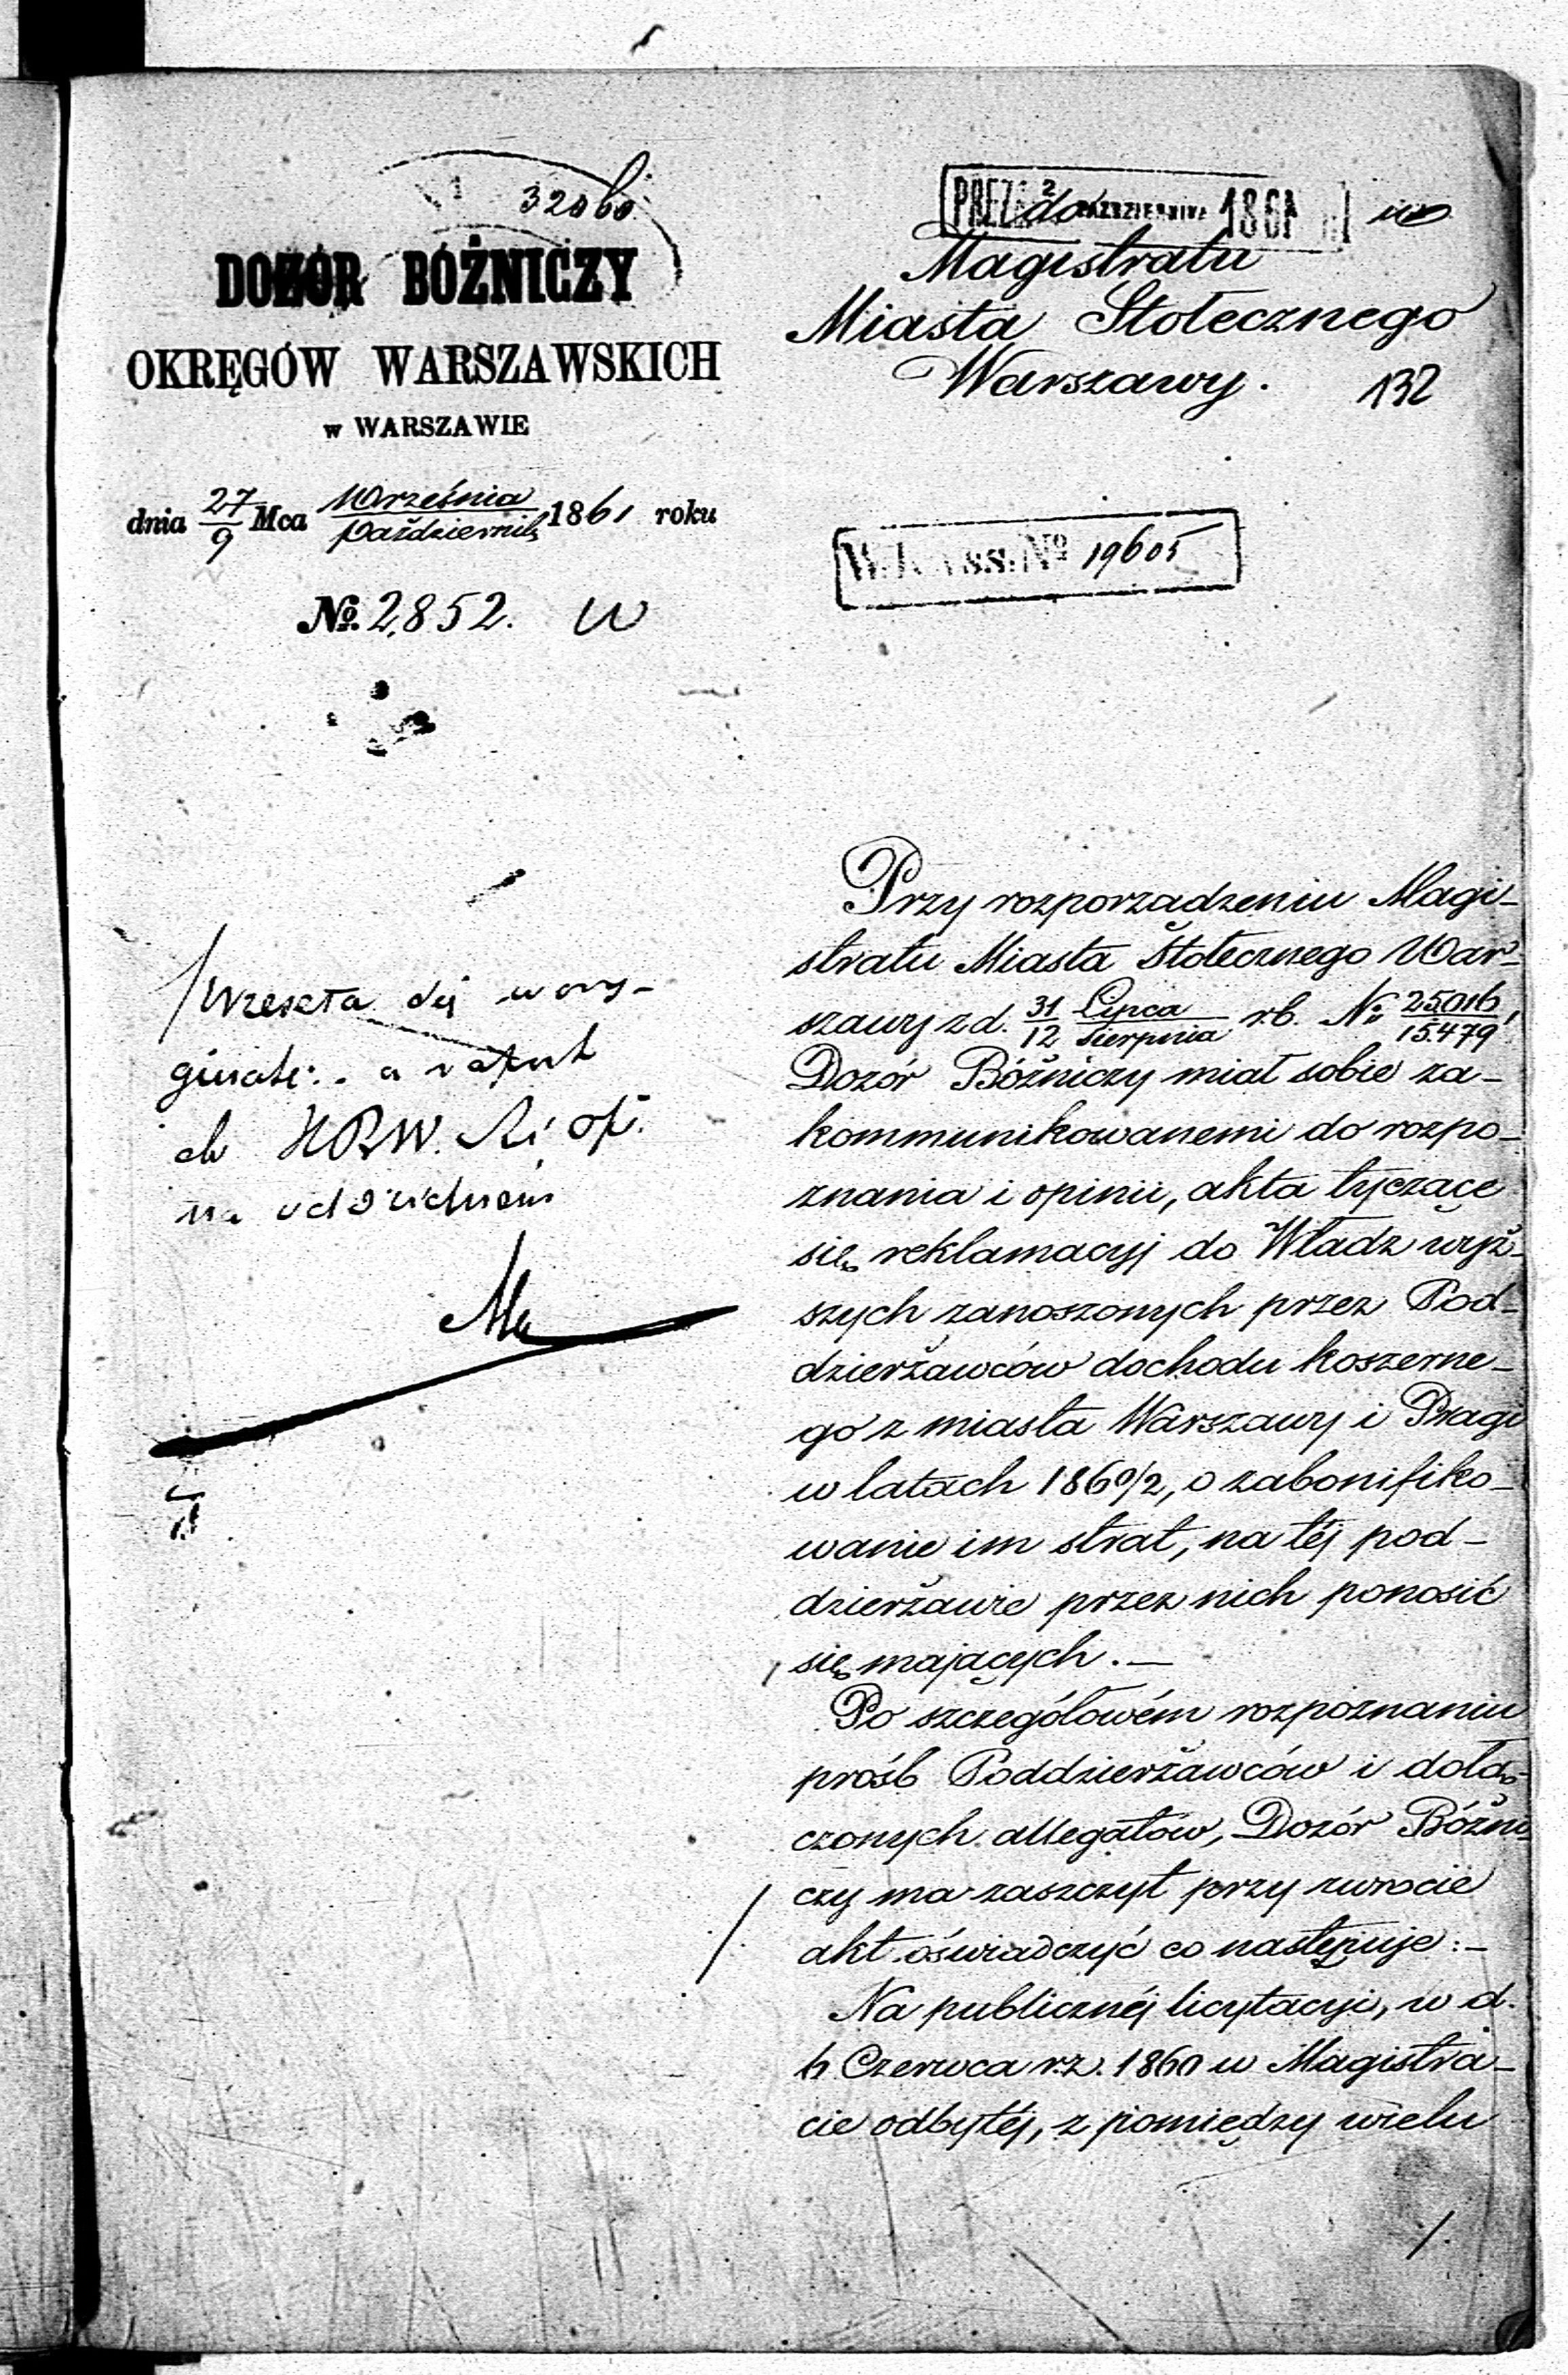 32060.
DOZÓR BÓŻNICZY
OKRĘGÓW WARSZAWSKICH
w WARSZAWIE
dnia 27/9 Mca Września/Październik 1861 roku
№ 2,852.
PREZ 2 PAZDZIERNIKA 1861
do
Magistratu
Miasta Stołecznego
Warszawy.
132
W. Kass. № 19605
na
Przy rozporządzeniu Magi-
stratu Miasta Stołecznego War-
szawy z d. 31/12 Lipca/Sierpnia r.b. № 25016/15.479,
Dozór Bóżniczy miał sobie za-
kommunikowanemi do rozpo-
znania i opinii, akta tyczące
się reklamacyj do Władz wyż-
szych zanoszonych przez Pod-
dzierżawców dochodu koszerne-
go z miasta Warszawy i Pragi
w latach 1860/2, o zabonifiko-
wanie im strat, na téj pod-
dzierżawie przez nich ponosić
się mających.—
Po szczegółowém rozpoznaniu
próśb Poddzierżawców i dołą-
czonych allegatów, Dozór Bóżni-
czy ma zaszczyt przy zwrocie
akt oświadczyć co następuje:—
Na publicznéj licytacyi, w d.
6 Czerwca r.z. 1860 w Magistra-
cie odbytéj, z pomiędzy wielu